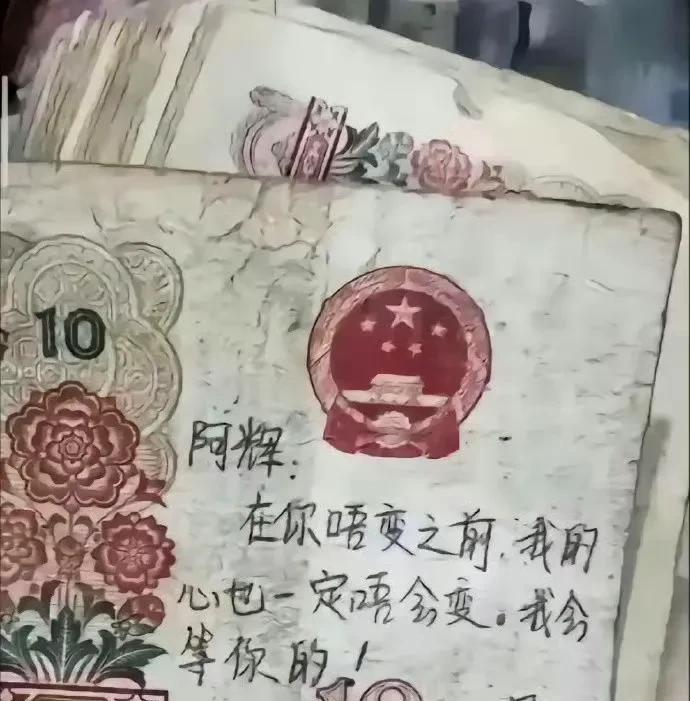 10
阿辉:
在你唔变之前,我的
心也一定唔会变。我会
等你的!
10